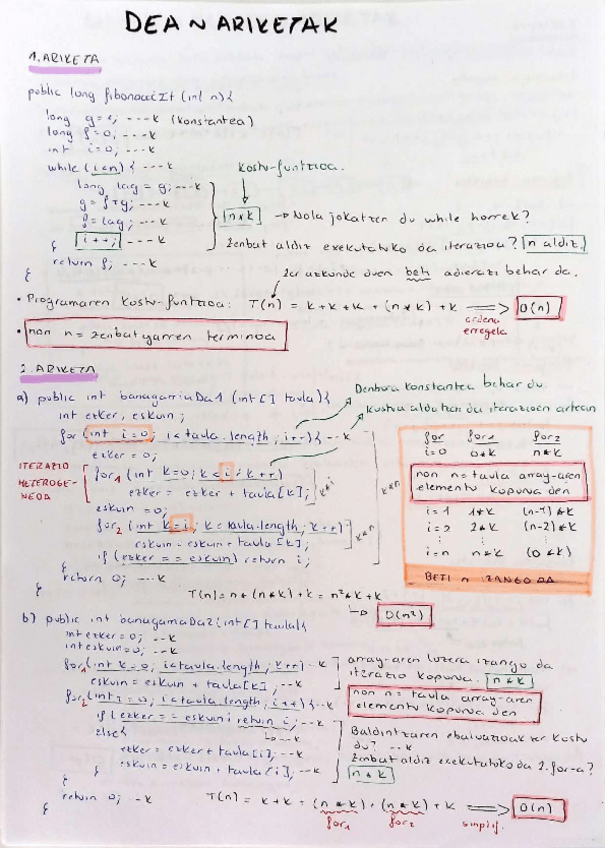 DEA ~ ARIKETAK
1. ARIKETA
public long fibonacciIt (int n) {
long g=1; ---k (konstantea)
long f=0; ---k
int i=0; ---k
while (i<n) { ---k
kostu-funtzioa.
long lag = g; ---k
g = f+g; ---k
n*k → Nola jokatzen du while horrek?
f = lag; ---k
i++; ---k
} zenbat aldiz exekutatuko da iterazioa? n aldiz.
return f; ---k
}
zer azkunde duen beti adierazi behar da.
• Programaren kostu-funtzioa: T(n) = k+k+k + (n*k) + k ⟹ O(n)
ordena
erregela
• non n = zenbatgarren terminoa
2. ARIKETA
a) public int banagarriaDa1 (int [] taula) {
Denbora konstantea behar du.
int ezker, eskuin;
kostua aldatzen da iterazioen artean
for (int i=0; i<taula.length; i++) { --k
ezker = 0;
ITERAZIO
HETEROGE-
NEOA
for1 (int k=0; k<i; k++)
ezker = ezker + taula[k];
k*i
eskuin = 0;
for2 (int k=i; k<taula.length; k++)
eskuin = eskuin + taula[k];
k*n
if (ezker == eskuin) return i;
k*n
}
return 0; ---k
}
for for1 for2
i=0 0*k n*k
non n = taula array-aren
elementu kopurua den
i=1 1*k (n-1)*k
i=2 2*k (n-2)*k
⋮ ⋮ ⋮
i=n n*k (0*k)
BETI n IZANGO DA
T(n) = n*(n*k)+k = n²*k+k
↳ O(n²)
b) public int banagarriaDa2 (int [] taula) {
int ezker = 0; --k
int eskuin = 0; --k
for1 (int k=0; i<taula.length; k++) --k
eskuin = eskuin + taula[k]; --k
array-aren luzera izango da
iterazio kopurua. n*k
for2 (int i=0; i<taula.length; i++) { --k
non n = taula array-aren
elementu kopurua den
if (ezker == eskuin) return i; --k
↳ --k
else {
Baldintzaren ebaluazioak zer kostu
du? --k
ezker = ezker + taula[i]; --k
eskuin = eskuin - taula[i]; --k
zenbat aldiz exekutatuko da 2. for-a?
n*k
}
}
return 0; --k
}
T(n) = k+k + (n*k) + (n*k) + k ⟹ O(n)
for1 for2 simplif.